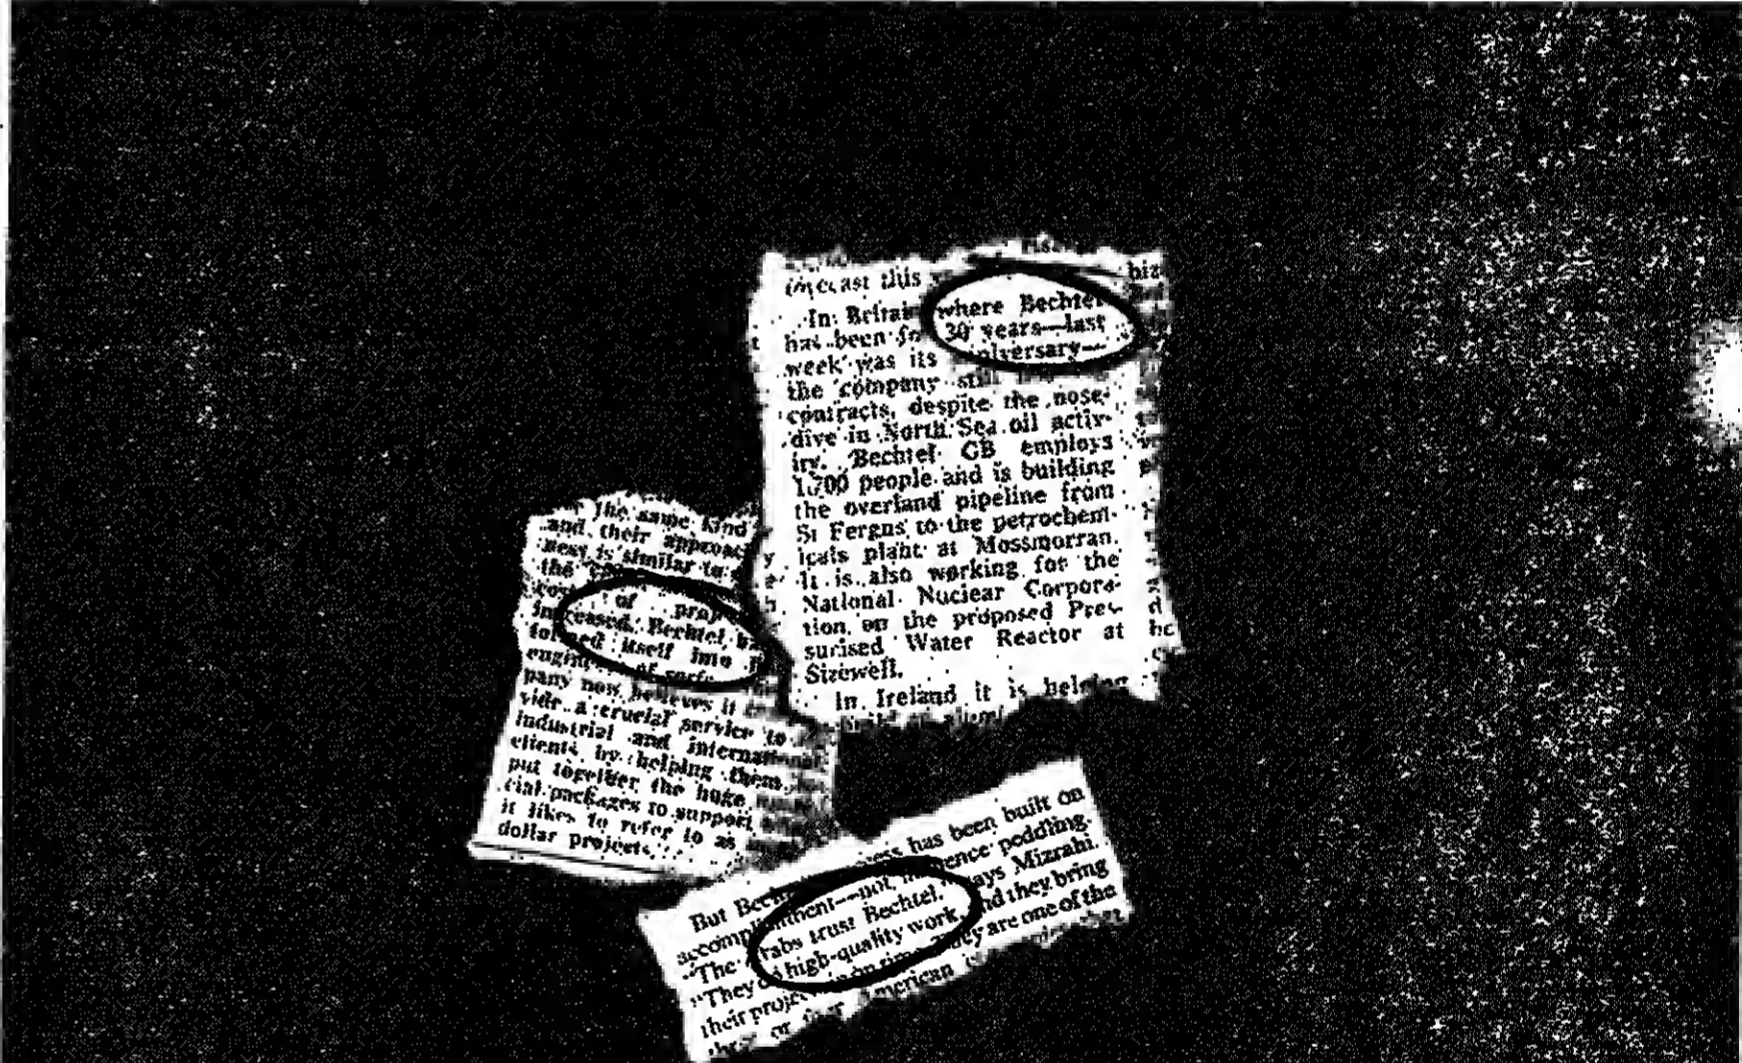 In Britain where Bechtel
has been for 30 years—last
week was its anniversary—
the company still
contracts, despite the nose-
dive in North Sea oil activ-
ity. Bechtel GB employs
1,700 people and is building
the overland pipeline from
St Fergus to the petrochem-
icals plant at Mossmorran.
It is also working for the
National Nuclear Corpora-
tion on the proposed Pres-
surised Water Reactor at
Sizewell.
In Ireland it is helping
The same kind
and their approac
ness is similar to
the
of proj
increased, Bechtel
formed itself into
engin of
pany now believes it
vide a crucial service to
industrial and international
clients by helping them
put together the huge
cial packages to support
it likes to refer to as
dollar projects.
But has been built on
accomplishment—not peddling.
"The Arabs trust Bechtel, says Mizrahi.
"They high-quality work, and they bring
their projec on time. They are one of the
or American